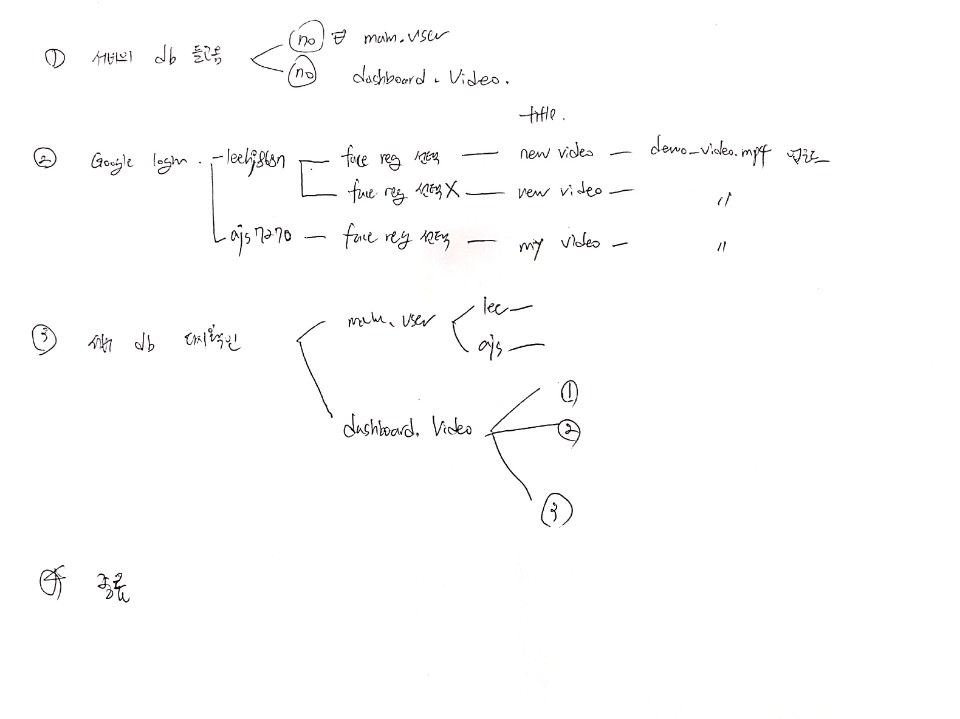 ① 서버의 db 목록 (no) main.user
(no) dashboard. Video.
title.
② Google login. face reg 선택 new video demo_video.mp4 업로드
face reg 선택X new video "
ajs7270 face reg 선택 my video "
③ db main.user lee
ajs
dashboard. Video ①
②
③
④ 종료